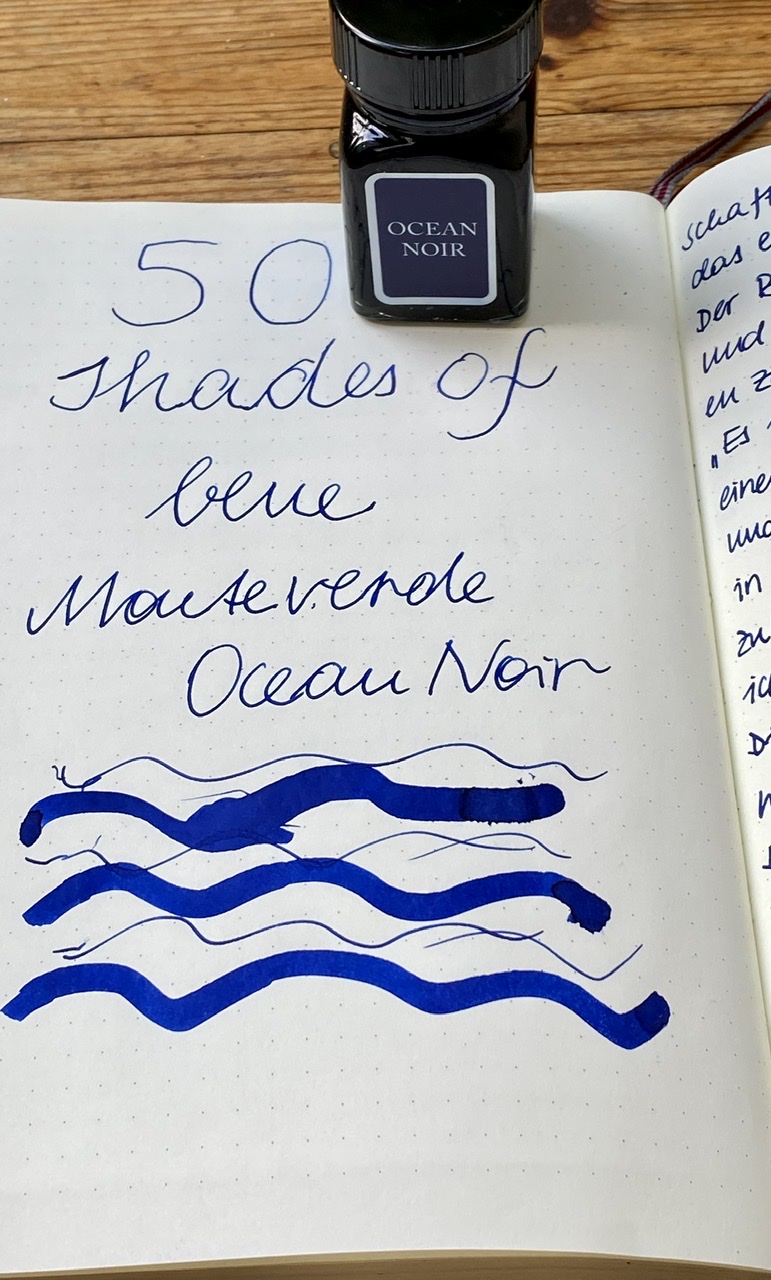 OCEAN
NOIR
50
Shades of
blue
Monteverde
Ocean Noir
schaft
das
Der
und
en
„Es
eine
und
in
zu